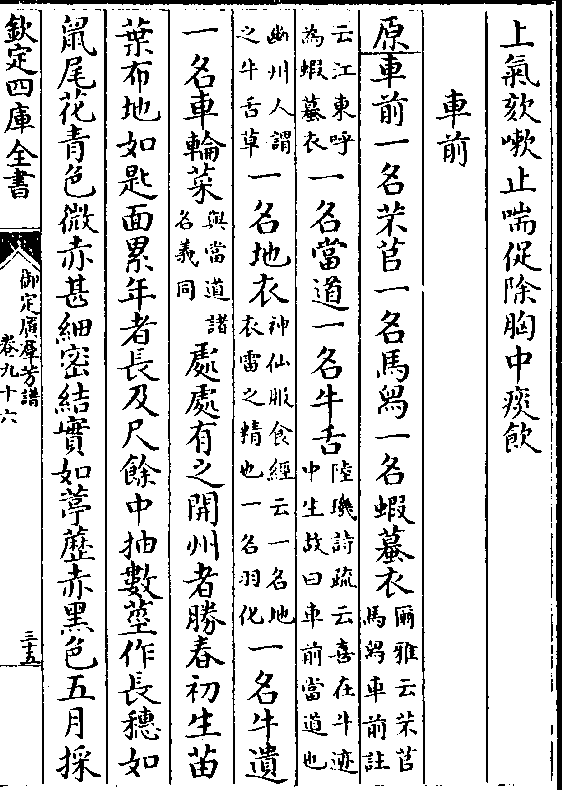 上氣欬嗽止喘促除胸中痰飲
車前
原車前一名芣苢一名馬舄一名蝦蟇衣爾雅云芣苢馬舄車前註
云江東呼為蝦蟇衣一名當道一名牛舌陸璣詩疏云喜在牛迹中生故曰車前當道也
幽州人謂之牛舌草一名地衣神仙服食經云一名地衣雷之精也一名羽化一名牛遺
一名車輪菜與當道諸名義同處處有之開州者勝春初生苗
葉布地如匙面累年者長及尺餘中抽數莖作長穗如
鼠尾花青色微赤甚細密結實如葶藶赤黑色五月採
欽定四庫全書
御定廣羣芳譜
卷九十六
三十五